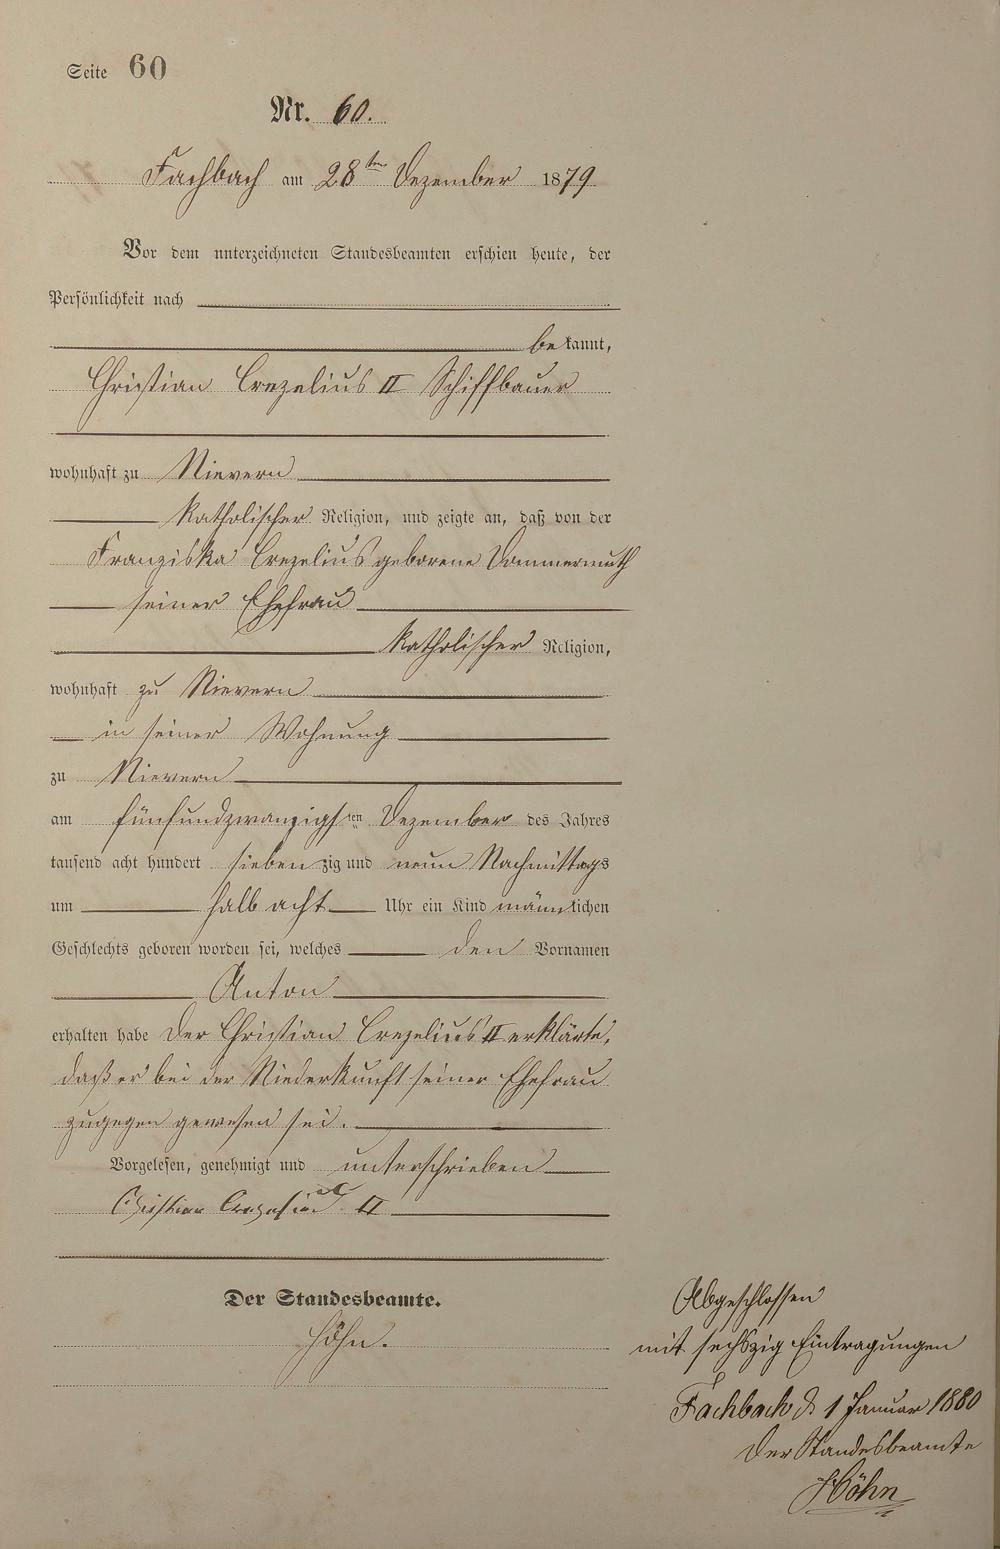 Seite 60
Nr. 60.
Fachbach am 28ten Dezember 1879
Vor dem unterzeichneten Standesbeamten erschien heute, der
Persönlichkeit nach
bekannt,
Christian Crezelius II Schiffbauer
wohnhaft zu Nievern
katholischer Religion, und zeigte an, daß von der
Franziska Crezelius geborene Dommermuth
seiner Ehefrau
katholischer Religion,
wohnhaft zu Nievern
in seiner Wohnung
zu Nievern
am fünfundzwanzigsten Dezember des Jahres
tausend acht hundert siebenzig und neun Nachmittags
um halb acht Uhr ein Kind männlichen
Geschlechts geboren worden sei, welches den Vornamen
Anton
erhalten habe Der Christian Crezelius II erklärte,
daß er bei der Niederkunft seiner Ehefrau
zugegen gewesen sei.
Vorgelesen, genehmigt und unterschrieben
Christian Crezelius II
Der Standesbeamte.
Höhn.
Abgeschlossen
mit sechszig Eintragungen
Fachbach d. 1 Januar 1880
Der Standesbeamte
Höhn